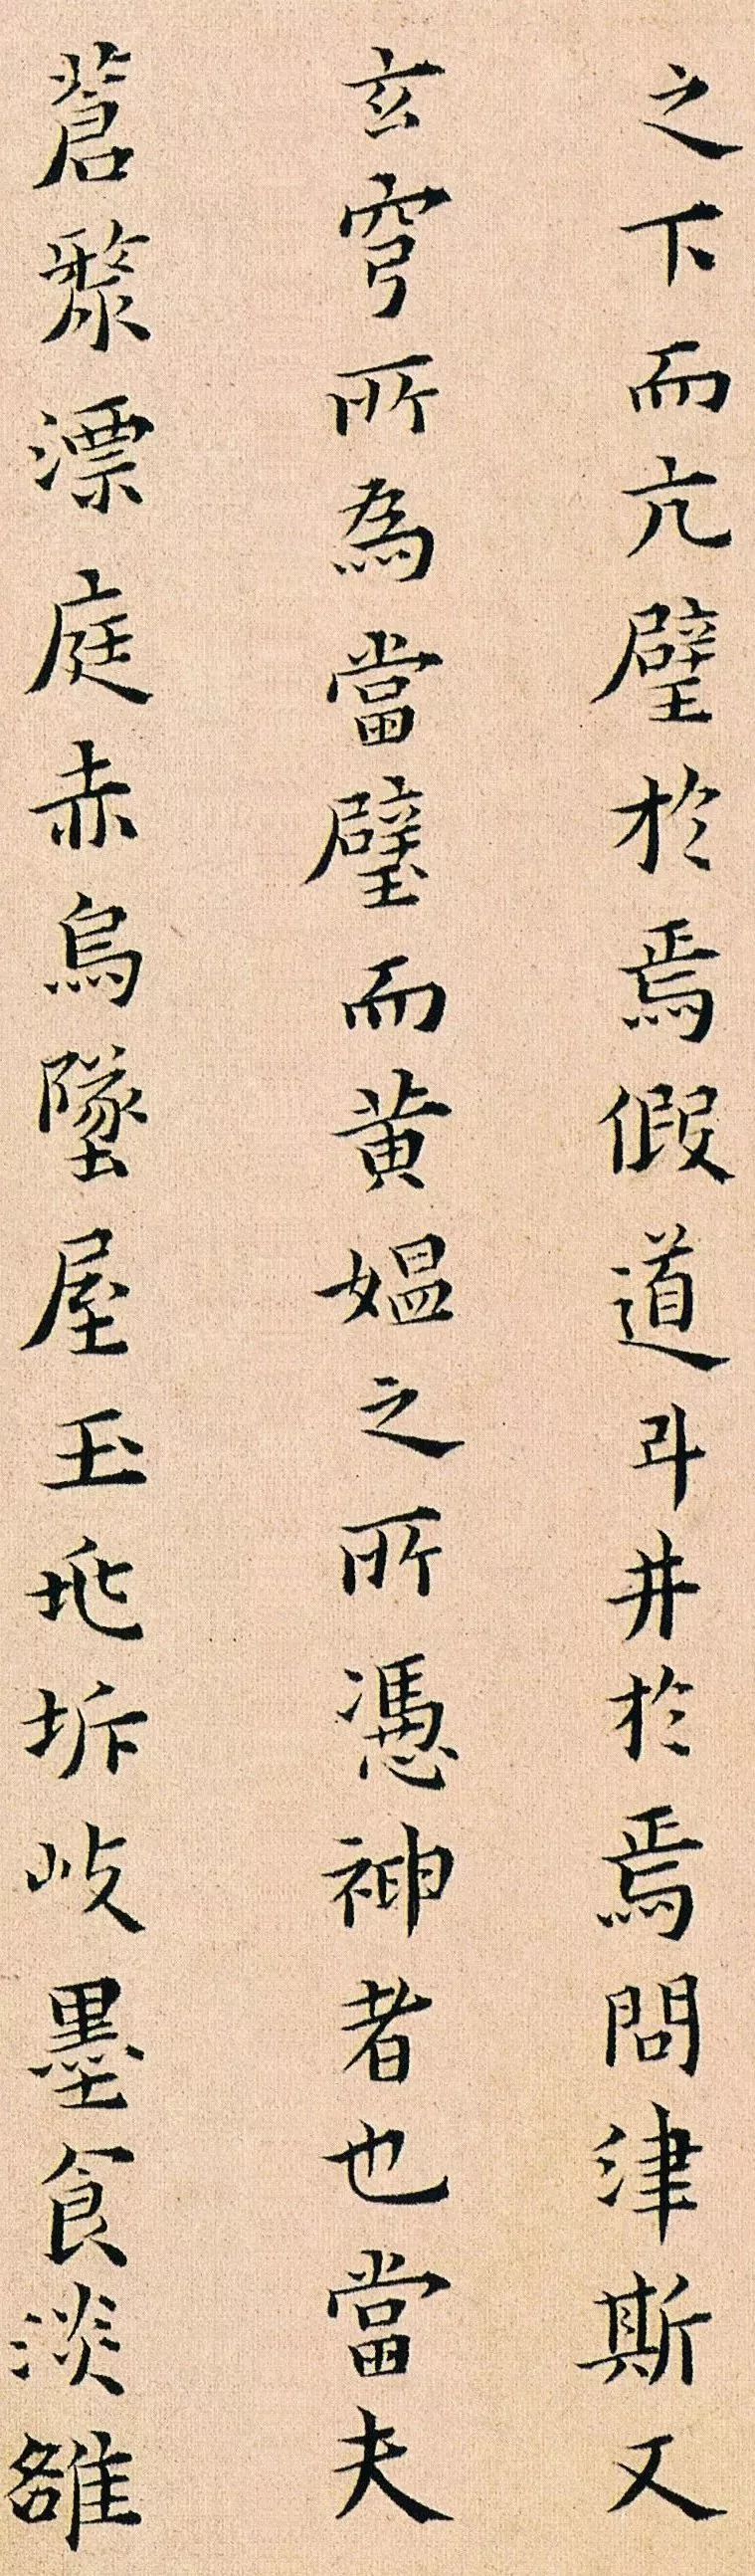 之下而亢璧於焉假道斗井於焉問津斯又
玄穹所為當璧而黃媼之所憑神者也當夫
蒼漦漂庭赤烏墜屋玉坼岐墨食淡雒